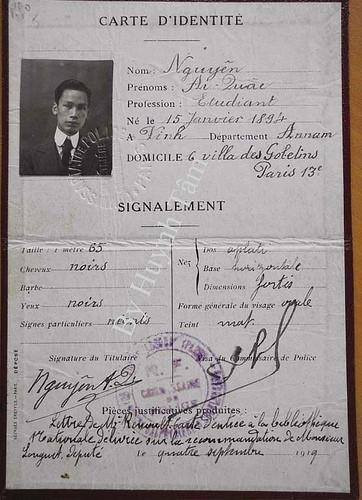 CARTE D'IDENTITÉ
Nom : Nguyễn
Prénoms : Ai-Quâc
Profession : Etudiant
Né le 15 Janvier 1894
A Vinh Département Annam
DOMICILE 6 villa des Gobelins
Paris 13e
SIGNALEMENT
Taille : 1 mètre 65
Cheveux noirs
Barbe
Yeux noirs
Signes particuliers
Nez
Dos aplati
Base horizontale
Dimensions fortes
Forme générale du visage ovale
Teint mat.
Signature du Titulaire
Visa du Commissaire de Police
Nguyễn A. Q.
Pièces justificatives produites :
Lettre de Mr Renoult, Carte d'entrée à la bibliothèque
Nationale délivrée sur la recommandation de Monsieur
Longuet, député le quatre septembre 1919
By Huynh Tam